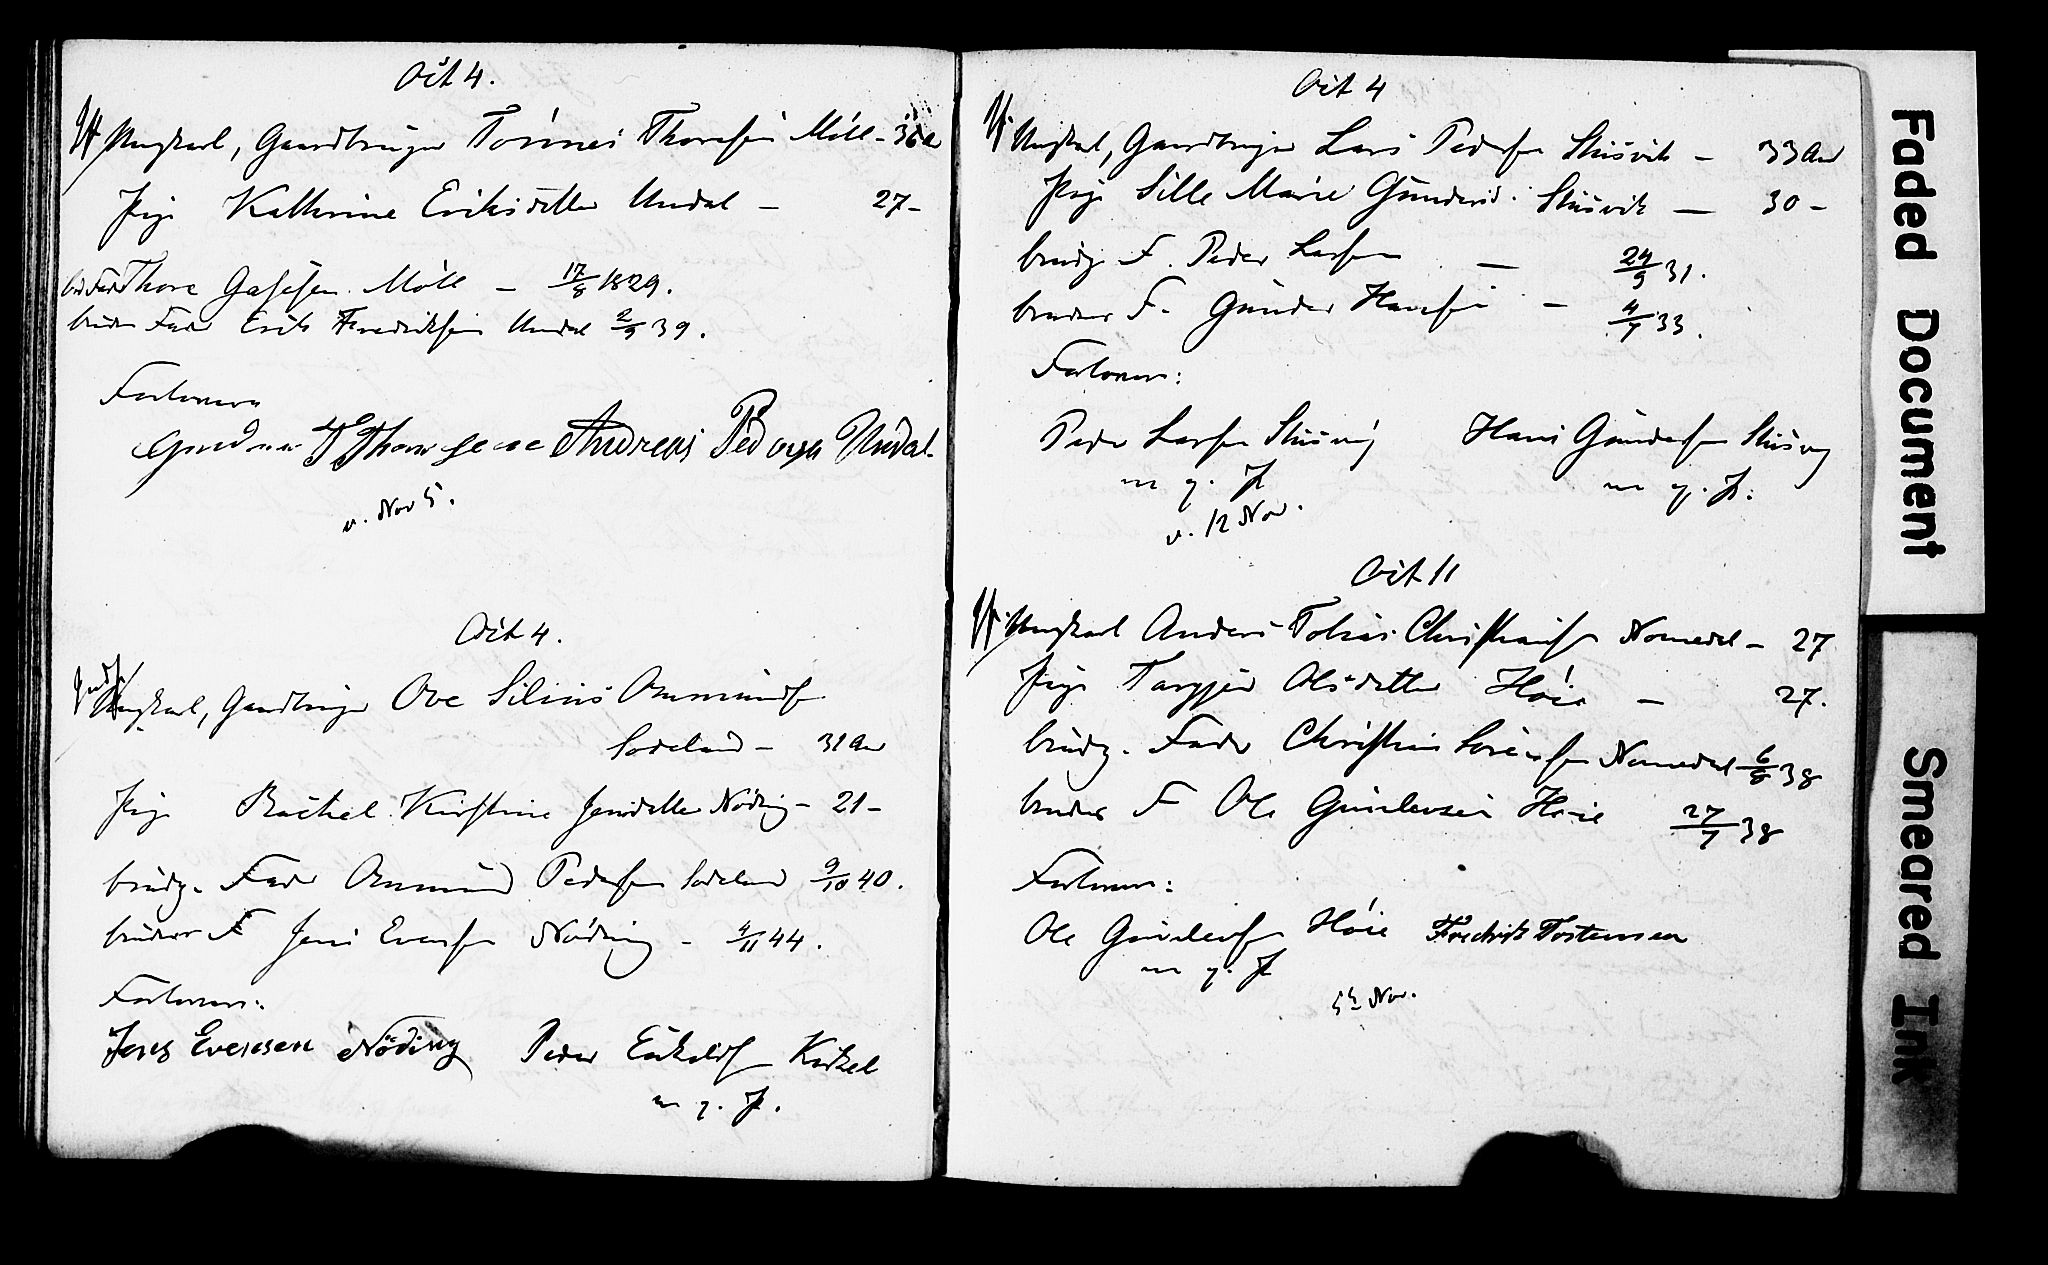 Oct 4.
Ungkarl, Gaardbruger Tönnes Thoresen Möll - 36 a
Pige Kathrine Eriksdatter Undal - 27 -
br Fad Thore Gasesen Möll - 17/8 1829.
brudens Fader Erik Fredriksen Undal 2/9 39.
Forlovere
Gudmun T Thorsen Andreas Pedersen Undal.
v. Nov 5.
Oct 4.
Ungkarl, Gaardbruger Ove Silius Ommunds
Sodeland - 31 Aar
Pige Rachel Kirstine Jensdatter Nöding - 21 -
brudg. Fader Ommund Pedersen Sodeland 9/10 40.
brudens F Jens Evensen Nöding - 4/11 44.
Forlovere:
Jens Evensen Nöding Peder Kitzel
m. p. P.
Oct 4
Ungkarl, Gaardbruger Lars Pedersen Skusvik - 33 Aar
Pige Sille Marie Gundersd. Skusvik - 30 -
brudg F. Peder Larsen - 24/9 31.
brudens F. Gunder Hansen - 4/7 33.
Forlovere:
Peder Larsen Skusvig Hans Gundersen Skusvig
m. p. P. m. p. P.
v. 12 Nov.
Oct 11
Ungkarl Anders Tobias Christians Nomedal - 27
Pige Targjer Olsdatter Höie - 27.
brudg. Fader Christian Sörensen Nomedal 6/8 38
brudens F Ole Gundersen Höie 27/7 38
Forlovere:
Ole Gundersen Höie Fredrik Tostensen
m. p. P.
5te Nov.
Faded Document
Smeared Ink